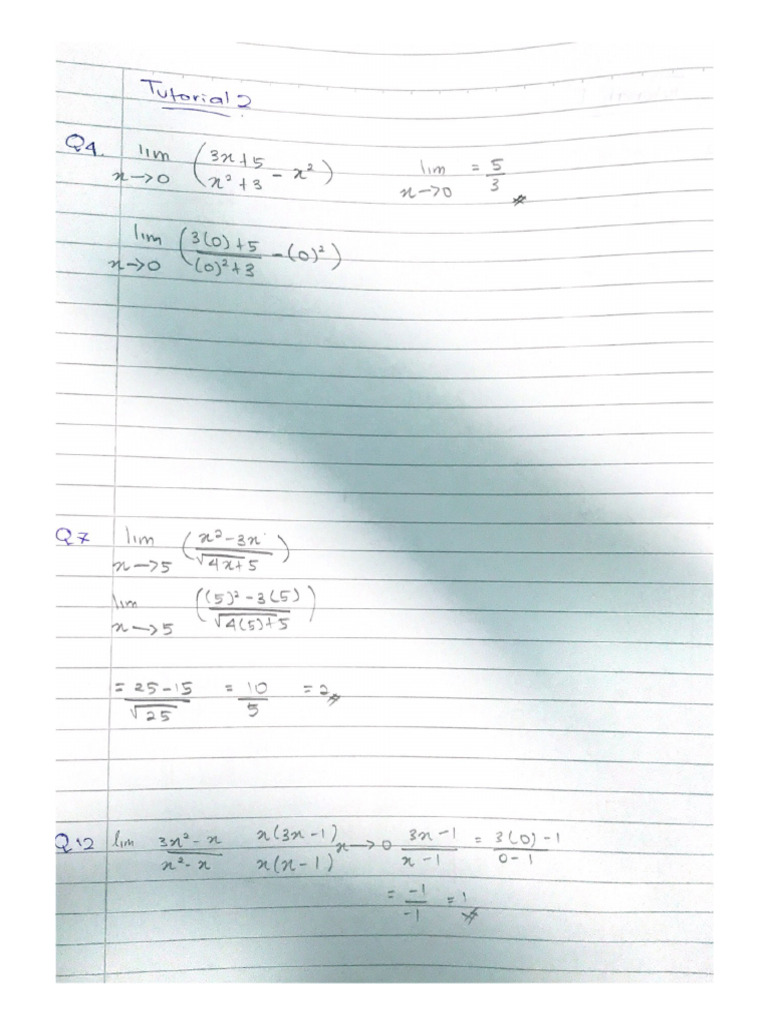 Tutorial 2
Q4. lim x→0 ( (3x+5)/(x²+3) − x² )    lim x→0 = 5/3
lim x→0 ( (3(0)+5)/((0)²+3) − (0)² )
Q7 lim x→5 ( (x²−3x)/√(4x+5) )
lim x→5 ( ((5)²−3(5))/√(4(5)+5) )
= (25−15)/√25 = 10/5 = 2
Q12 lim (3x²−x)/(x²−x)  x(3x−1)/x(x−1)  x→0  (3x−1)/(x−1) = (3(0)−1)/(0−1)
= −1/−1 = 1